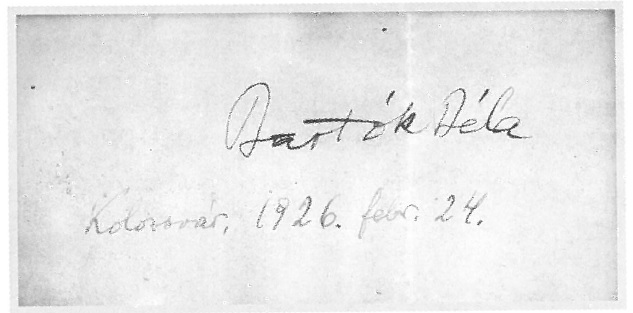 Bartók Béla
Kolozsvár, 1926. febr. 24.